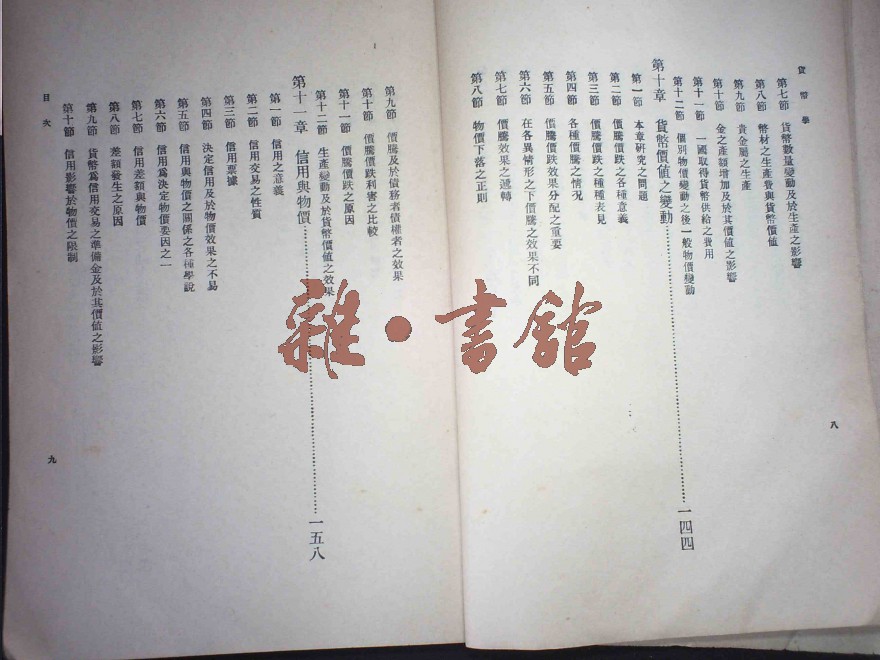 貨幣學
第七節 貨幣數量變動及於生產之影響
第八節 幣材之生產費與貨幣價值
第九節 貴金屬之生產
第十節 金之產額增加及於其價值之影響
第十一節 一國取得貨幣供給之費用
第十二節 個別物價變動之後一般物價變動
第十章 貨幣價值之變動 一四四
第一節 本章研究之問題
第二節 價騰價跌之各種意義
第三節 價騰價跌之種種表見
第四節 各種價騰之情況
第五節 價騰價跌效果分配之重要
第六節 在各異情形之下價騰之效果不同
第七節 價騰效果之遞轉
第八節 物價下落之正則
八
第九節 價騰及於債務者債權者之效果
第十節 價騰價跌利害之比較
第十一節 價騰價跌之原因
第十二節 生產變動及於貨幣價值之效果
第十一章 信用與物價 一五八
第一節 信用之意義
第二節 信用交易之性質
第三節 信用票據
第四節 決定信用及於物價效果之不易
第五節 信用與物價之關係之各種學說
第六節 信用爲決定物價要因之一
第七節 信用差額與物價
第八節 差額發生之原因
第九節 貨幣爲信用交易之準備金及於其價值之影響
第十節 信用影響於物價之限制
目次
九
雜·書館